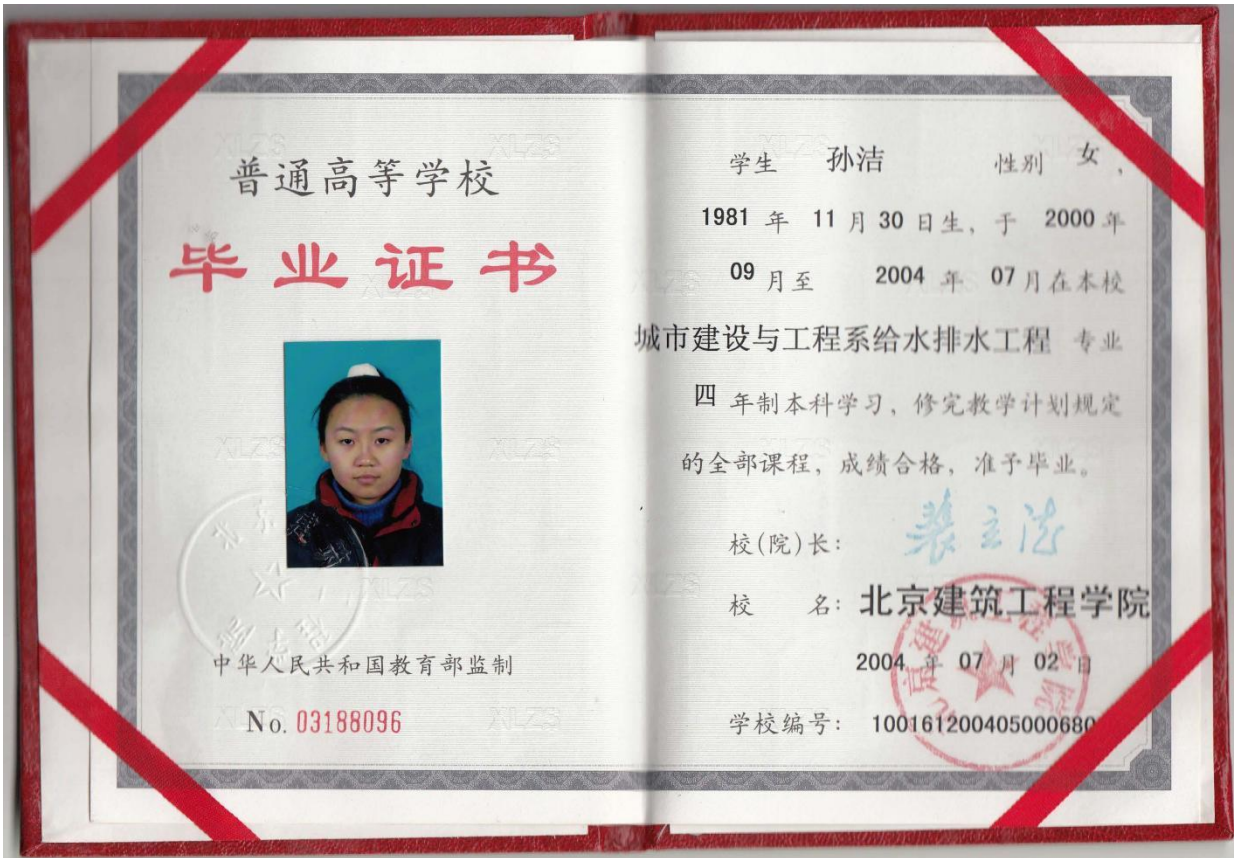 普通高等学校
毕业证书
中华人民共和国教育部监制
No. 03188096
学生 孙洁 性别 女,
1981 年 11 月 30 日生, 于 2000 年
09 月至 2004 年 07 月在本校
城市建设与工程系给水排水工程 专业
四 年制本科学习、修完教学计划规定
的全部课程, 成绩合格, 准予毕业。
校(院)长:
校 名: 北京建筑工程学院
2004 年 07 月 02 日
学校编号: 100161200405000680
XLZS